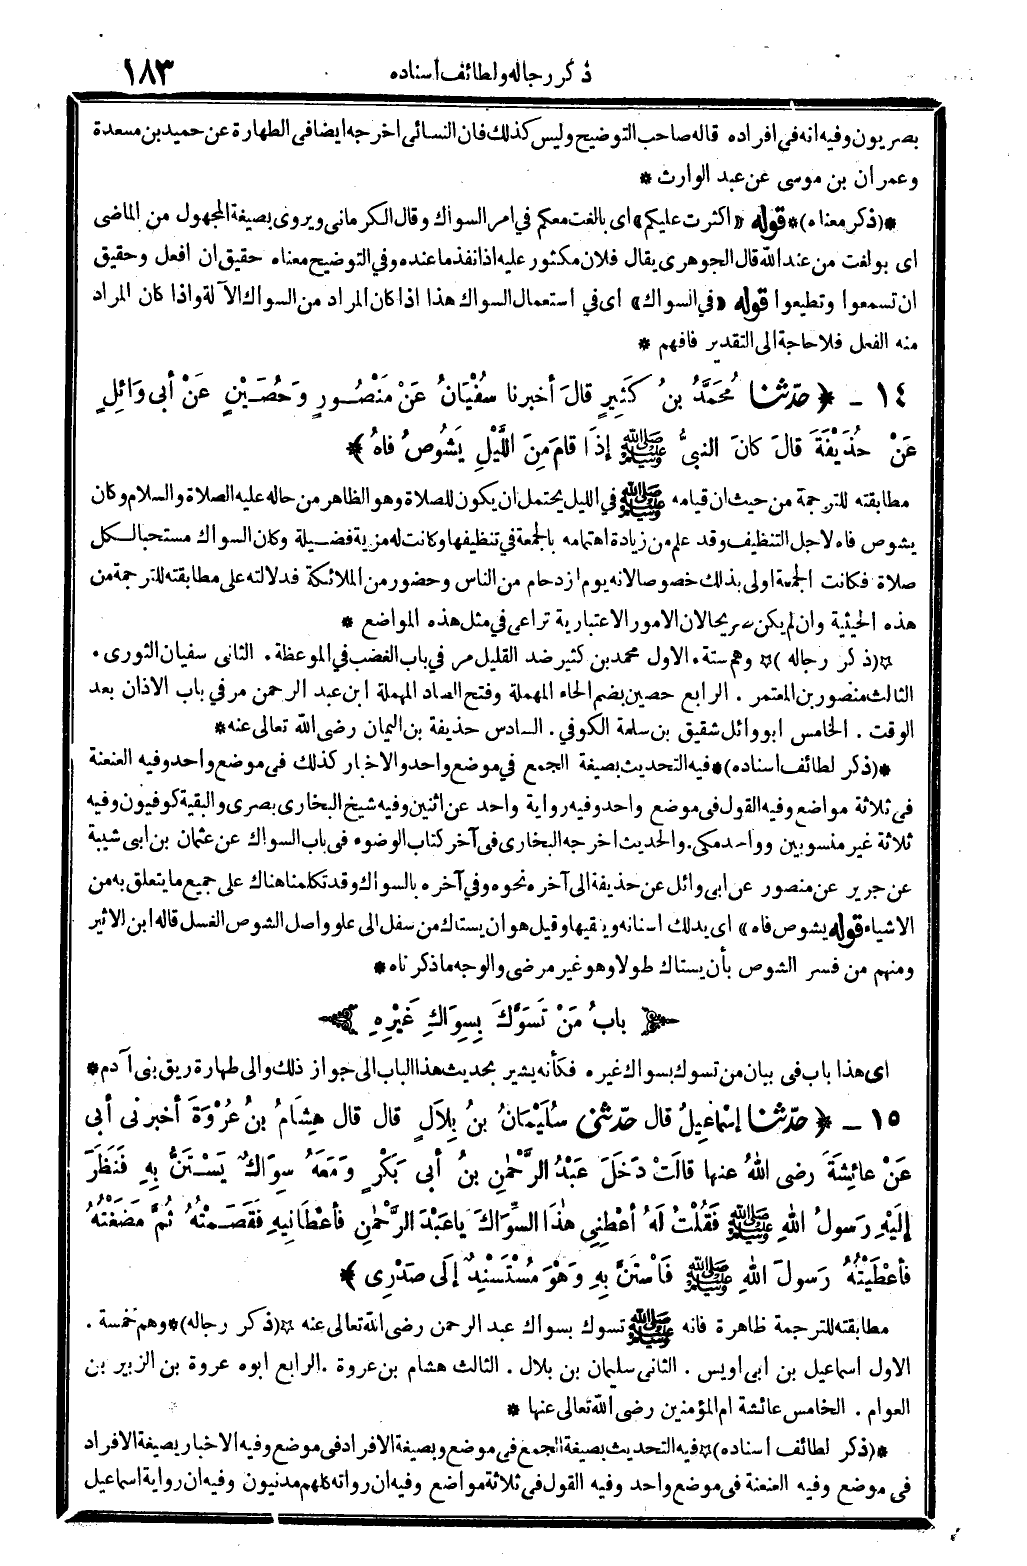 ذكر رجاله ولطائف أسناده ١٨٣
بصريون وفيه انه في افراده قاله صاحب التوضيح وليس كذلك فان النسائى اخرجه ايضا في الطهارة عن حميد بن مسعدة
وعمران بن موسى عن عبد الوارث *
*(ذكر معناه)* قوله «اكثرت عليكم» اى بالغت معكم في امر السواك وقال الكرمانى ويروى بصيغة المجهول من الماضى
اى بولغت من عند الله قال الجوهرى يقال فلان مكثور عليه اذا نفذ ما عنده وفي التوضيح معناه حقيق ان افعل وحقيق
ان تسمعوا وتطيعوا قوله «في السواك» اى في استعمال السواك هذا اذا كان المراد من السواك الآلة واذا كان المراد
منه الفعل فلا حاجة الى التقدير فافهم *
١٤ ـ ﴿ حدّثنا مُحَمَّدُ بنُ كَثِيرٍ قالَ أخبرنا سُفْيَانُ عَنْ مَنْصُورٍ وَحُصَيْنٍ عَنْ أبى وَائِلٍ
عَنْ حُذَيْفَةَ قالَ كانَ النبىُّ ﷺ إذَا قامَ مِنَ اللَّيْلِ يَشُوصُ فاهُ ﴾
مطابقته للترجمة من حيث ان قيامه ﷺ في الليل يحتمل ان يكون للصلاة وهو الظاهر من حاله عليه الصلاة والسلام وكان
يشوص فاه لاجل التنظيف وقد علم من زيادة اهتمامه بالجمعة في تنظيفها وكانت له مزية فضيلة وكان السواك مستحبا لكل
صلاة فكانت الجمعة اولى بذلك خصوصا لانه يوم ازدحام من الناس وحضور من الملائكة فدلالته على مطابقته للترجمة من
هذه الحيثية وان لم يكن صريحا لان الامور الاعتبارية تراعى في مثل هذه المواضع *
*(ذكر رجاله)* وهم ستة. الاول محمد بن كثير ضد القليل مر في باب الغضب في الموعظة. الثانى سفيان الثورى.
الثالث منصور بن المعتمر. الرابع حصين بضم الحاء المهملة وفتح الصاد المهملة ابن عبد الرحمن مر في باب الاذان بعد
الوقت. الخامس ابو وائل شقيق بن سلمة الكوفي. السادس حذيفة بن اليمان رضى الله تعالى عنه *
*(ذكر لطائف اسناده)* فيه التحديث بصيغة الجمع في موضع واحد والاخبار كذلك فى موضع واحد وفيه العنعنة
فى ثلاثة مواضع وفيه القول فى موضع واحد وفيه رواية واحد عن اثنين وفيه شيخ البخارى بصرى والبقية كوفيون وفيه
ثلاثة غير منسوبين وواحد مكى. والحديث اخرجه البخارى فى آخر كتاب الوضوء فى باب السواك عن عثمان بن ابى شيبة
عن جرير عن منصور عن ابى وائل عن حذيفة الى آخره نحوه وفي آخره بالسواك وقد تكلمنا هناك على جميع ما يتعلق به من
الاشياء قوله يشوص فاه» اى يدلك اسنانه وينقيها وقيل هو ان يستاك من سفل الى علو واصل الشوص الغسل قاله ابن الاثير
ومنهم من فسر الشوص بأن يستاك طولا وهو غير مرضى والوجه ما ذكرناه *
بابُ مَنْ تَسَوَّكَ بِسِوَاكِ غَيْرِهِ
اى هذا باب فى بيان من تسوك بسواك غيره فكأنه يشير بحديث هذا الباب الى جواز ذلك والى طهارة ريق بنى آدم *
١٥ ـ ﴿ حدّثنا إسْماعِيلُ قال حدّثنى سُلَيْمَانُ بنُ بِلَالٍ قال قال هِشَامُ بنُ عُرْوَةَ أخبرنى أبى
عَنْ عائِشَةَ رضى اللهُ عنها قالَتْ دَخَلَ عَبْدُ الرَّحْمٰنِ بنُ أبى بَكْرٍ ومَعَهُ سِوَاكٌ يَسْتَنُّ بِهِ فَنَظَرَ
إلَيْهِ رَسولُ اللهِ ﷺ فَقُلْتُ لَهُ أعْطِنِى هذَا السِّوَاكَ ياعَبْدَ الرَّحْمٰنِ فأعْطَانِيهِ فَقَصَمْتُهُ ثُمَّ مَضَغْتُهُ
فأعْطَيْتُهُ رَسولَ اللهِ ﷺ فَاسْتَنَّ بِهِ وَهْوَ مُسْتَسْنِدٌ إلَى صَدْرِى ﴾
مطابقته للترجمة ظاهرة فانه ﷺ تسوك بسواك عبد الرحمن رضى الله تعالى عنه *(ذكر رجاله)* وهم خمسة.
الاول اسماعيل بن ابى اويس. الثانى سليمان بن بلال. الثالث هشام بن عروة. الرابع ابوه عروة بن الزبير بن
العوام. الخامس عائشة ام المؤمنين رضى الله تعالى عنها *
*(ذكر لطائف أسناده)* فيه التحديث بصيغة الجمع فى موضع وبصيغة الافراد فى موضع وفيه الاخبار بصيغة الافراد
فى موضع وفيه العنعنة فى موضع واحد وفيه القول فى ثلاثة مواضع وفيه ان رواته كلهم مدنيون وفيه ان رواية اسماعيل